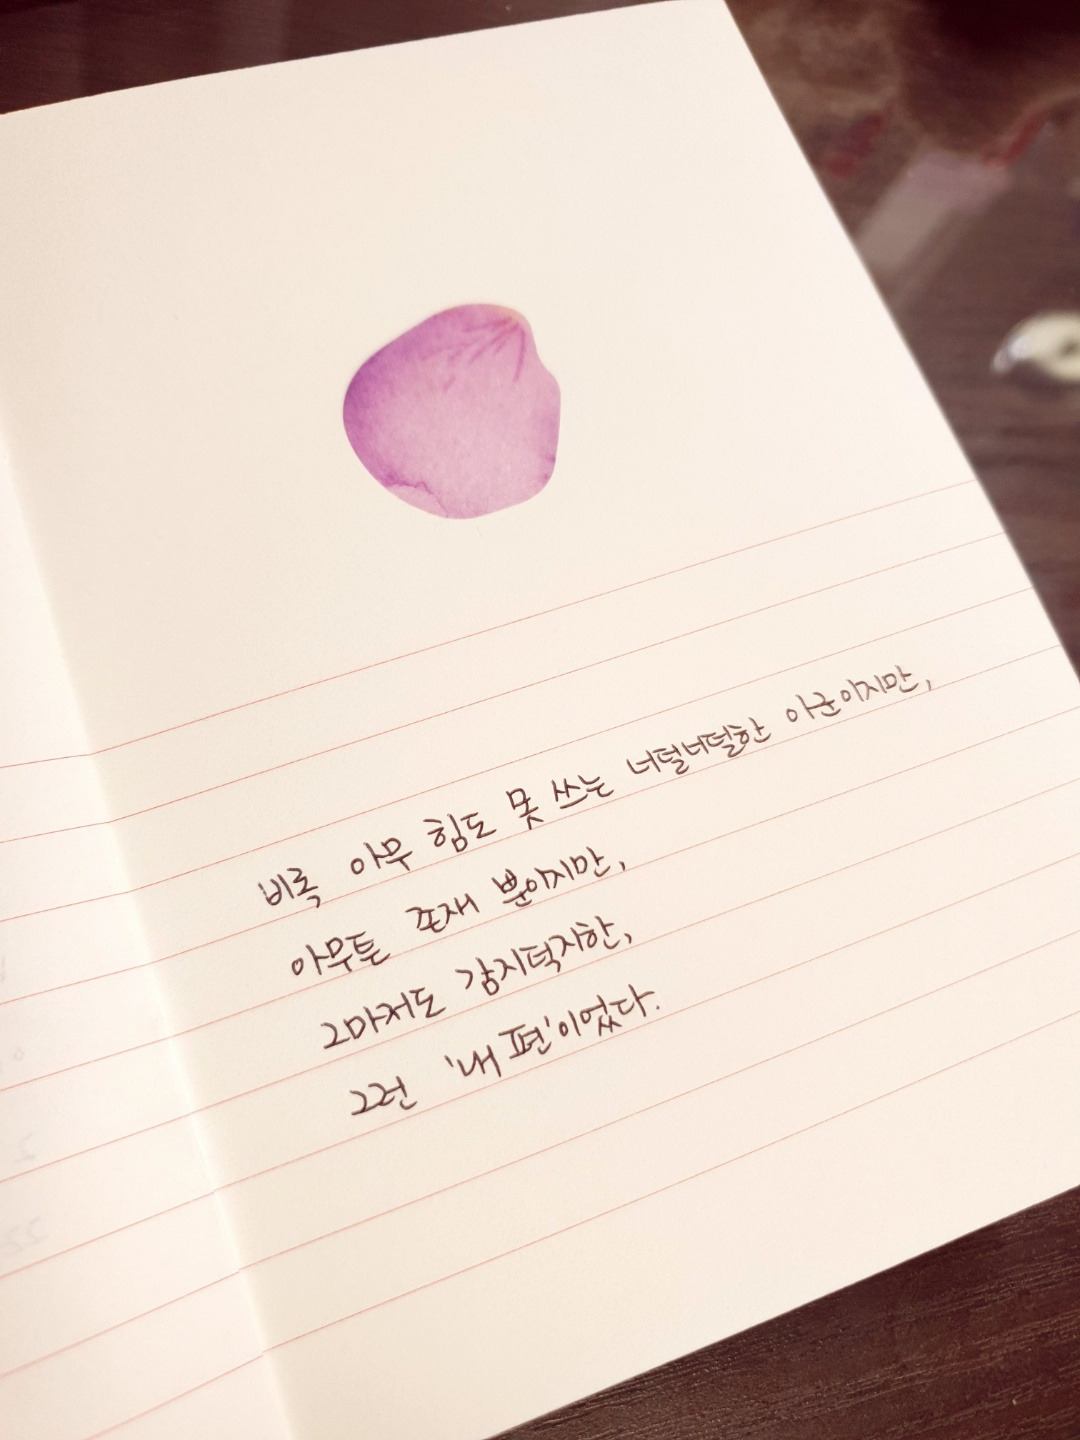 비록 아무 힘도 못 쓰는 너덜너덜한 아군이지만,
아무튼 존재 뿐이지만,
그마저도 감지덕지한,
그건 '내 편'이었다.